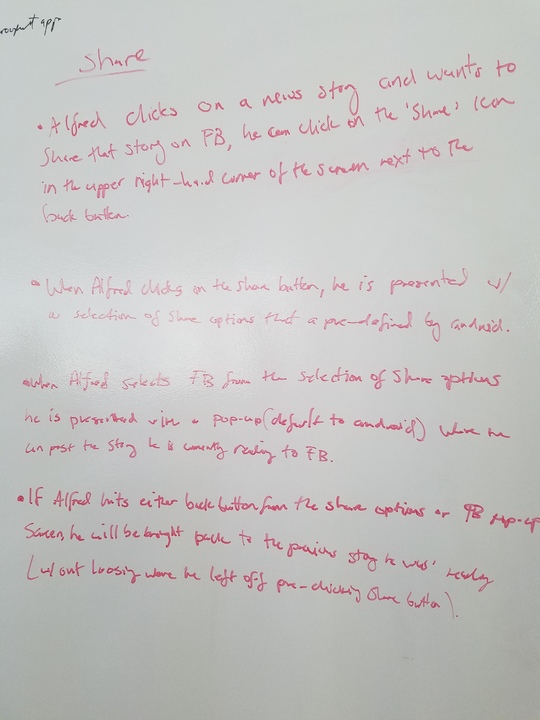 app
Share
• Alfred clicks on a news story and wants to
Share that story on FB, he can click on the 'Share' icon
in the upper right-hand corner of the screen next to the
back button.
• When Alfred clicks on the share button, he is presented w/
a selection of share options that a pre-defined by android.
• When Alfred selects FB from the selection of share options
he is presented with a pop-up (default to android) where he
can post the story he is currently reading to FB.
• If Alfred hits either back button from the share options or FB pop-up
Screen, he will be brought back to the previous story he was reading
(w/out loosing where he left off pre-clicking share button).